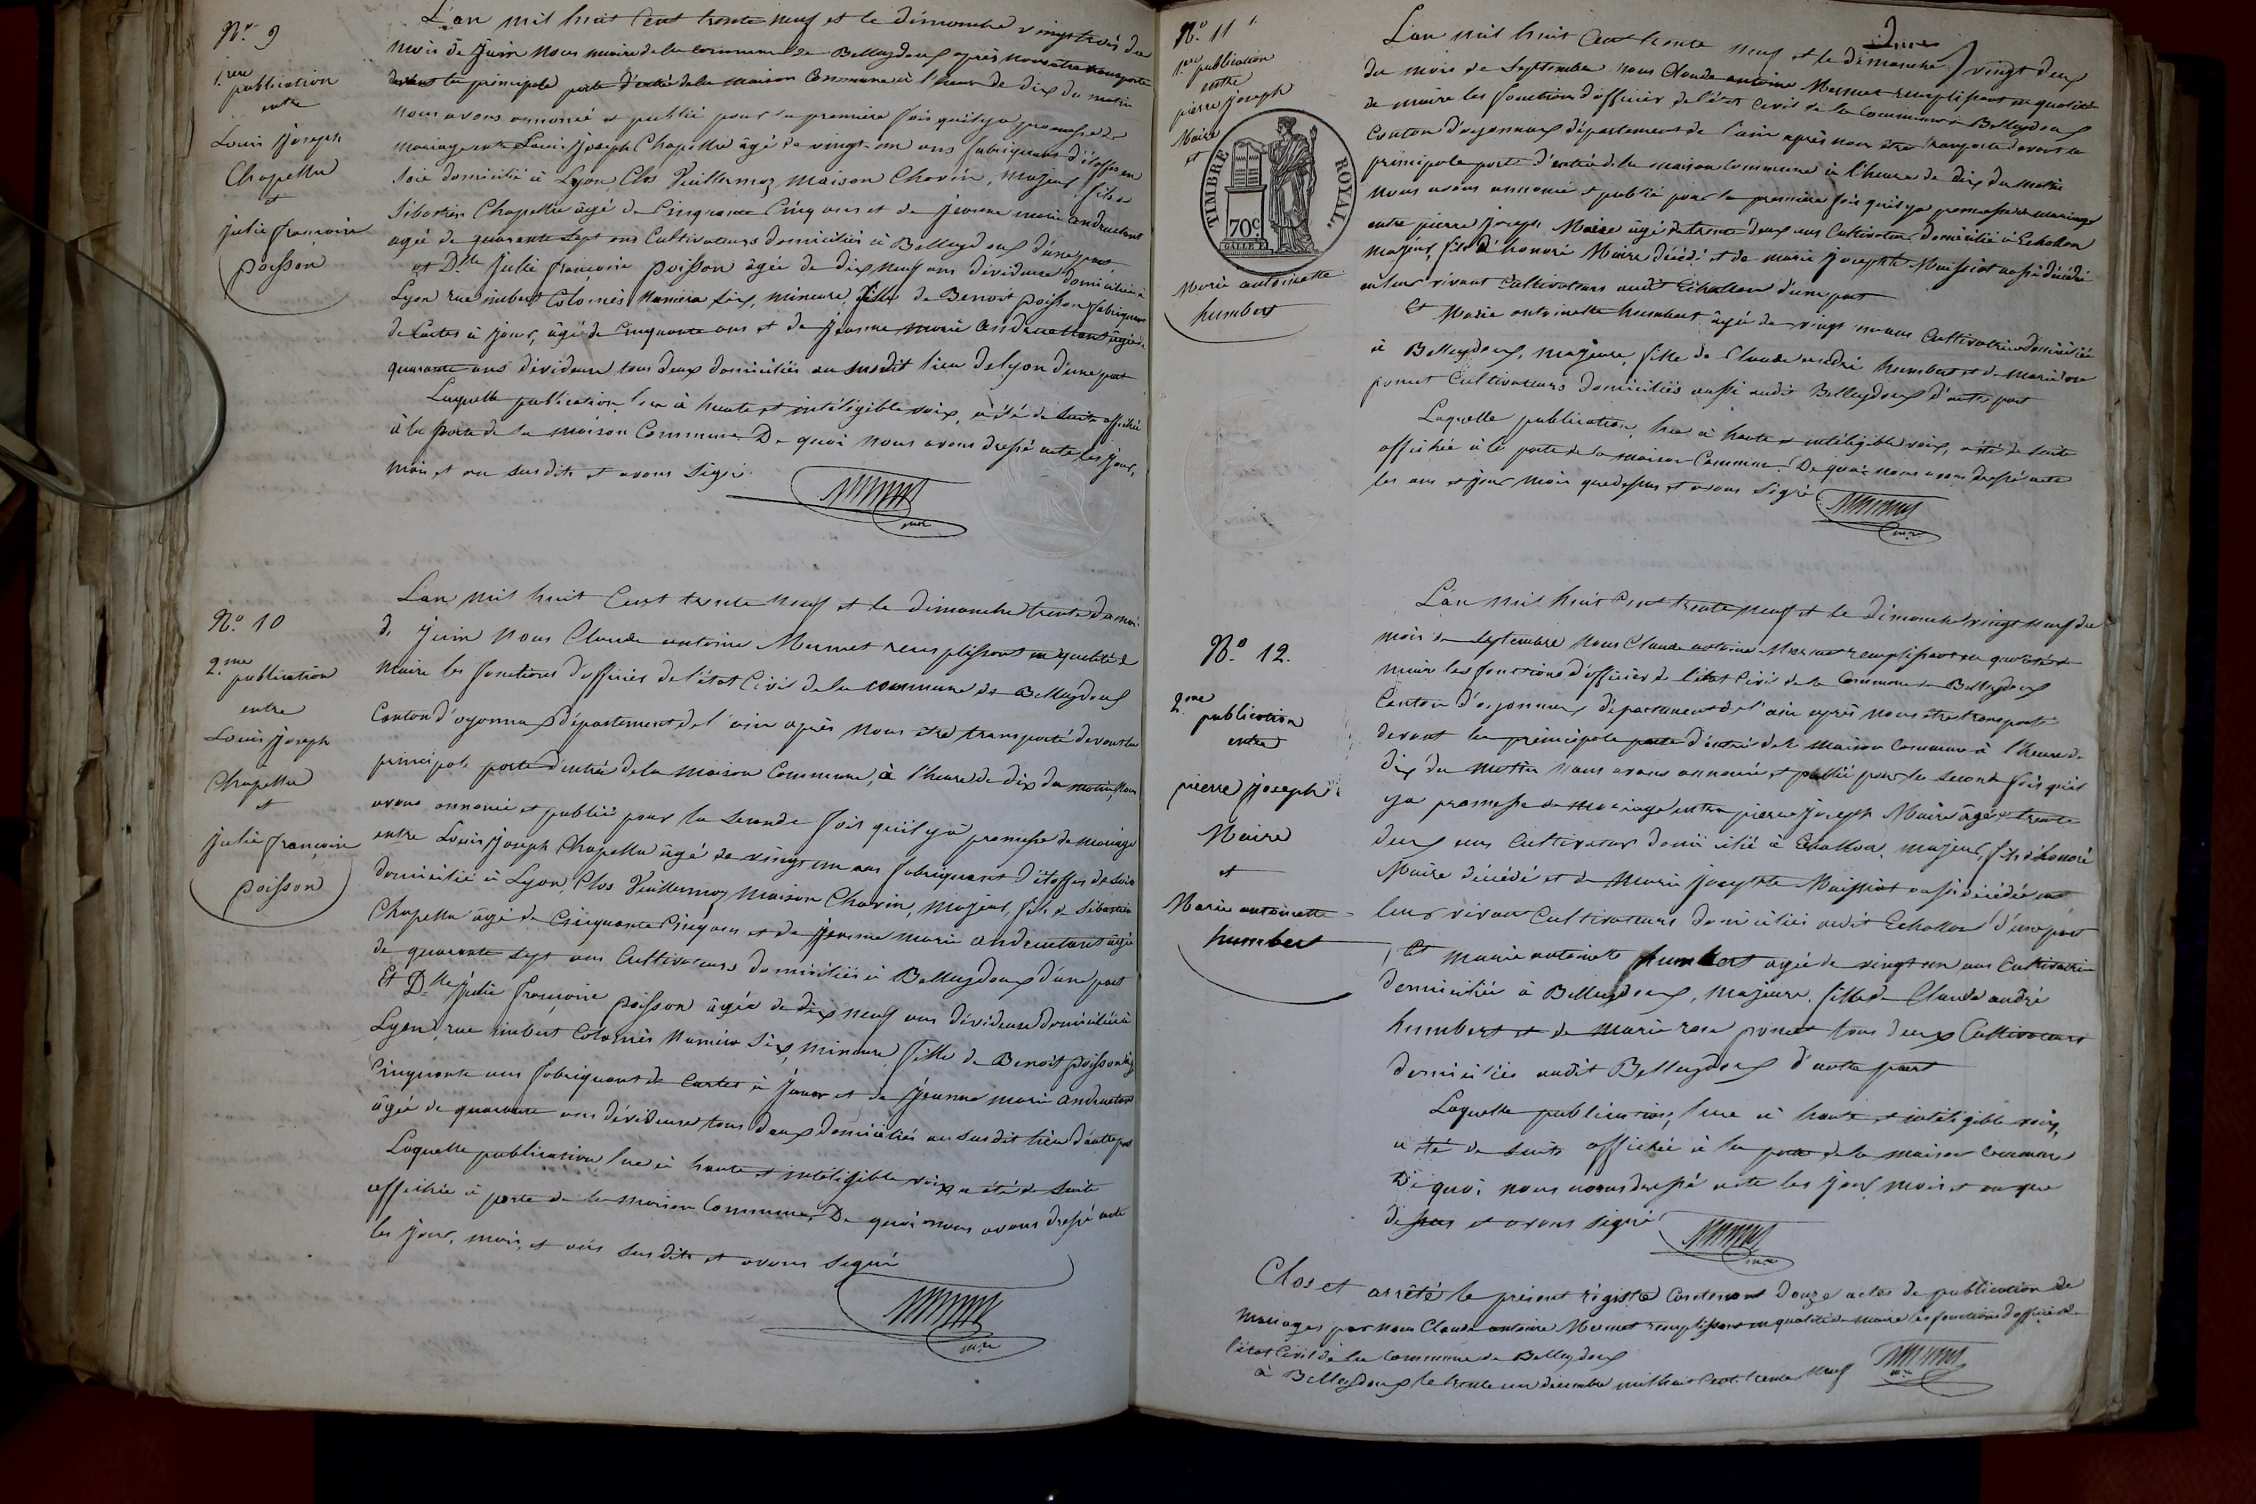 N.º 9
1.ere
publication
entre
Louis Joseph
Chapellu
et
Julie françoise
poisson
L'an mil huit Cent trente neuf et le dimanche vingt trois du
mois de Juin Nous maire de la commune de Belleydoux après nous être transporté
devant la principale porte d'entrée de la maison Commune à l'heure de dix du matin
nous avons annoncé et publié pour la première fois qu'il y a promesse de
mariage entre Louis Joseph Chapellu âgé de vingt un ans fabriquant d'étoffes en
soie domicilié à Lyon, Clos Vuillermoz maison Chavin, majeur fils de
Sébastien Chapellu âgé de Cinquante Cinq ans et de Jeanne marie andruetant
agée de quarante sept ans Cultivateurs domiciliés à Belleydoux d'une part
et D.lle Julie françoise poisson âgée de dix neuf ans dévideuse domiciliée à
Lyon rue imbert Colomès Numéro Six, mineure, fille de Benoit poisson fabriquant
de Cartes à jouer, âgé de Cinquante ans et de Jeanne marie Andruetant âgée de
quarante ans dévideuse tous deux domiciliés au susdit lieu de Lyon d'une part
Laquelle publication lue à haute et intéligible voix, a été de suite affichée
à la porte de la maison Commune De quoi nous avons dressé acte les jour,
mois et an susdits et avons signé
Mermet
mre
N.º 10
2.me
publication
entre
Louis Joseph
Chapellu
et
Julie françoise
poisson
L'an mil huit Cent trente neuf et le dimanche trente du mois
de Juin Nous Claude antoine Mermet remplissant en qualité de
maire les fonctions d'officier de l'état Civil de la commune de Belleydoux
Canton d'oyonnax département de l'ain après nous être transporté devant la
principale porte d'entrée de la maison Commune, à l'heure de dix du matin, Nous
avons annoncé et publié pour la seconde fois qu'il y a promesse de mariage
entre Louis Joseph Chapellu âgé de vingt un ans fabriquant d'étoffes de soie
domicilié à Lyon, Clos Vuillermoz maison Chavin, majeur, fils de Sébastien
Chapellu âgé de Cinquante Cinq ans et de Jeanne marie andruetant âgée
de quarante sept ans Cultivateurs domiciliés à Belleydoux d'une part
Et D.lle Julie françoise poisson âgée de dix neuf ans dévideuse domiciliée à
Lyon, rue imbert Colomès Numéro Six, mineure fille de Benoit poisson
Cinquante ans fabriquant de Cartes à Jouer et de Jeanne marie andruetant
âgée de quarante ans dévideuse tous deux domiciliés au susdit lieu d'autre part
Laquelle publication lue à haute et intéligible voix a été de suite
affichée à porte de la maison Commune, De quoi nous avons dressé acte
les jour, mois, et ans susdits et avons signé
Mermet
mre
N.º 11
1.ere publication
entre
pierre joseph
Maire
et
Marie antoinette
humbert
TIMBRE ROYAL
70c
L'an mil huit Cent trente neuf et le dimanche vingt deux
du mois de Septembre nous Claude antoine Mermet remplissant en qualité
de maire les fonctions d'officier de l'état Civil de la Commune de Belleydoux
Canton d'oyonnax département de l'ain après nous être transporté devant la
principale porte d'entrée de la maison Commune à l'heure de dix du matin
Nous avons annoncé et publié pour la première fois qu'il y a promesse de mariage
entre pierre joseph Maire âgé de trente deux ans Cultivateur domicilié à Echallon
majeur, fils d'honoré Maire décédé et de marie josephte Maissiat aussi décédée
en leur vivant Cultivateurs audit Echallon d'une part
Et Marie antoinette humbert âgée de vingt un ans Cultivatrice domiciliée
à Belleydoux, majeure, fille de Claude andré humbert et de Marie rose
poncet Cultivateurs domiciliés aussi audit Belleydoux d'autre part
Laquelle publication, lue à haute et intéligible voix, a été de suite
affichée à la porte de la maison Commune. De quoi nous avons dressé acte
les ans et jour mois que dessus et avons signé
Mermet
mre
N.º 12.
2.me
publication
entre
pierre joseph
Maire
et
Marie antoinette
humbert
L'an mil huit Cent trente neuf et le dimanche vingt neuf du
mois de Septembre Nous Claude antoine Mermet remplissant en qualité de
maire les fonctions d'officier de l'état Civil de la Commune de Belleydoux
Canton d'oyonnax département de l'ain après nous être transporté
devant la principale porte d'entrée de la maison Commune à l'heure de
dix du matin Nous avons annoncé et publié pour la seconde fois qu'il
y a promesse de mariage entre pierre joseph Maire âgé de trente
deux ans Cultivateur domicilié à Echallon, majeur, fils d'honoré
Maire décédé et de Marie josephte Maissiat aussi décédée en
leur vivant Cultivateurs domiciliés audit Echallon d'une part
Et marie antoinette humbert agée de vingt un ans Cultivatrice
domiciliée à Belleydoux, majeure, fille de Claude andré
humbert et de Marie rose poncet tous deux Cultivateurs
domiciliés audit Belleydoux d'autre part
Laquelle publication, lue à haute et intéligible voix,
a été de suite affichée à la porte de la maison commune
De quoi nous avons dressé acte les jour mois et an que
dessus et avons signé
Mermet
mre
Clos et arrêté le présent registre Contenant douze actes de publication de
Mariages par nous Claude antoine Mermet remplissant en qualité de maire les fonctions d'officier de
l'état Civil de la Commune de Belleydoux
à Belleydoux le trente un décembre mil huit Cent trente Neuf
Mermet
mre